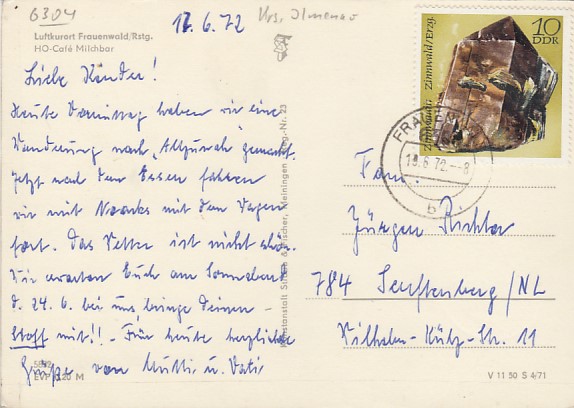 6304
17.6.72 Krs. Ilmenau
Luftkurort Frauenwald/Rstg.
HO-Café Milchbar
Liebe Kinder!
Heute Vormittag haben wir eine
Wanderung nach „Allzunah" gemacht.
Jetzt nach dem Essen fahren
wir mit Noacks mit dem Wagen
fort. Das Wetter ist nicht schön.
Wir erwarten Euch am Sonnabend
d. 24.6. bei uns, bringe Deinen
Stoff mit!! - Für heute herzliche
Grüße von Mutti u. Vati
EVP 0,20 M
Zinnwaldit Zinnwald/Erzg.
10
DDR
FRAUENWALD
19.6.72.-8
b
Fam.
Jürgen Richter
784 Senftenberg/NL
Wilhelm-Külz-Str. 11
V 11 50 S 4/71